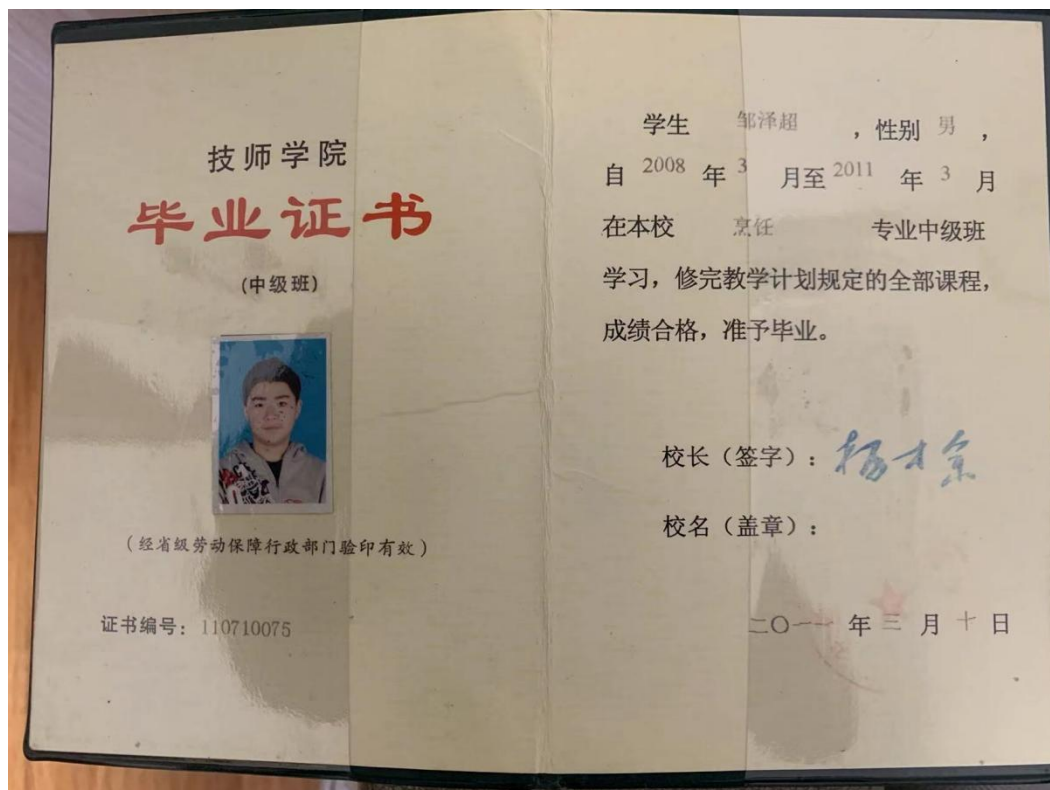 技师学院
毕业证书
(中级班)
(经省级劳动保障行政部门验印有效)
证书编号：110710075
学生 邹泽超 ，性别 男 ，
自 2008 年 3 月至 2011 年 3 月
在本校 烹饪 专业中级班
学习，修完教学计划规定的全部课程，
成绩合格，准予毕业。
校长（签字）：
校名（盖章）：
二〇一一 年 三 月 十 日